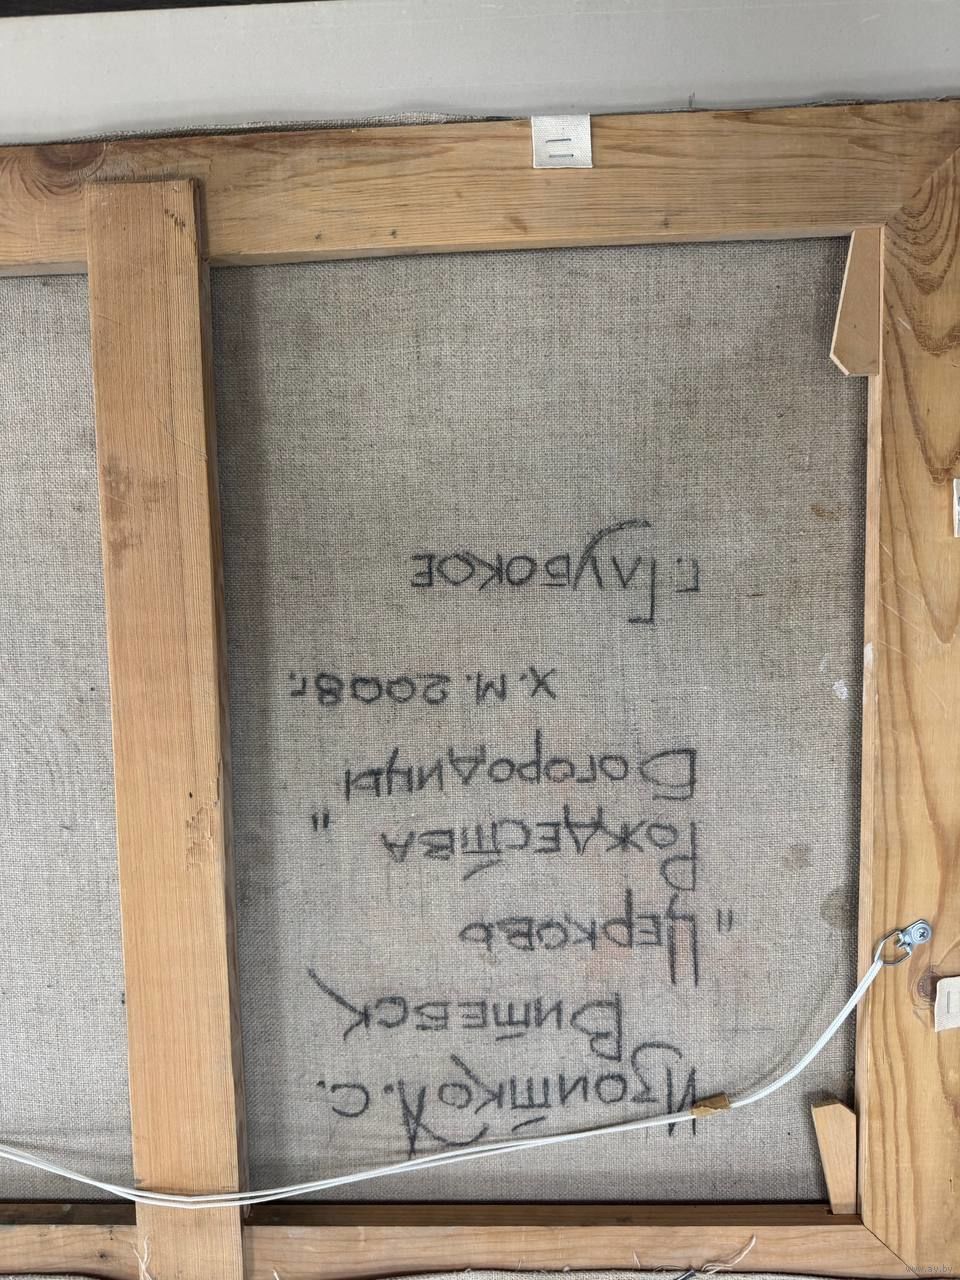 Изоитко А. С.
Витебск
"Церковь
Рождества
Богородицы"
х.м. 2008г.
г. Глубокое
www.ay.by